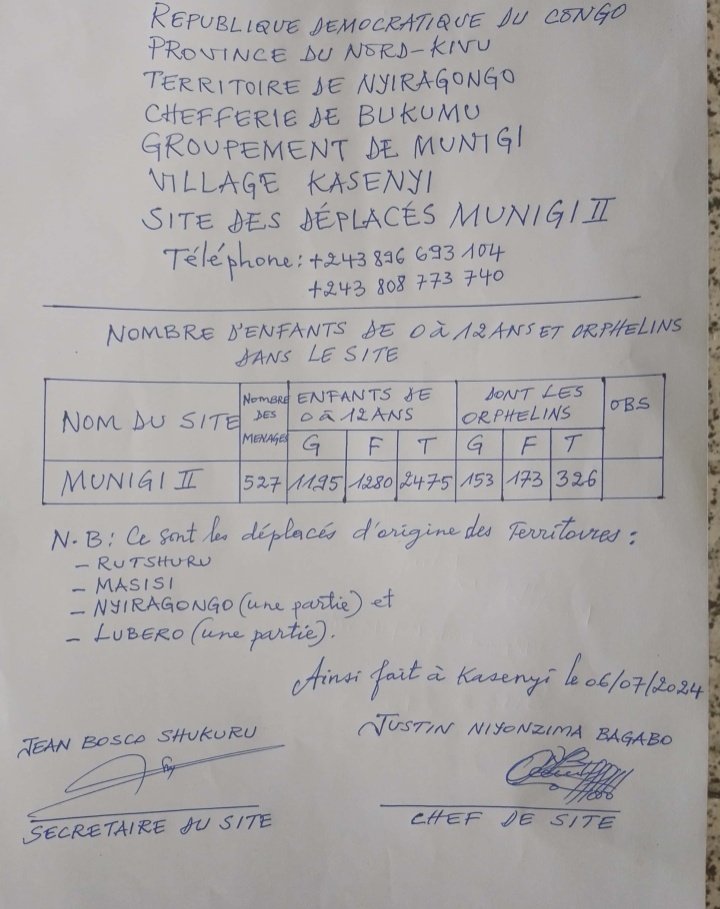 REPUBLIQUE DEMOCRATIQUE DU CONGO
PROVINCE DU NORD-KIVU
TERRITOIRE DE NYIRAGONGO
CHEFFERIE DE BUKUMU
GROUPEMENT DE MUNIGI
VILLAGE KASENYI
SITE DES DÉPLACÉS MUNIGI II
Téléphone: +243 896 693 104
+243 808 773 740
NOMBRE D'ENFANTS DE 0 à 12 ANS ET ORPHELINS
DANS LE SITE
NOM DU SITE NOMBRE DES MENAGES ENFANTS DE 0 à 12 ANS DONT LES ORPHELINS OBS
G F T G F T
MUNIGI II 527 1195 1280 2475 153 173 326
N.B: Ce sont les déplacés d'origine des Territoires:
- RUTSHURU
- MASISI
- NYIRAGONGO (une partie) et
- LUBERO (une partie).
Ainsi fait à Kasenyi le 06/07/2024
JEAN BOSCO SHUKURU JUSTIN NIYONZIMA BAGABO
SECRETAIRE DU SITE CHEF DE SITE